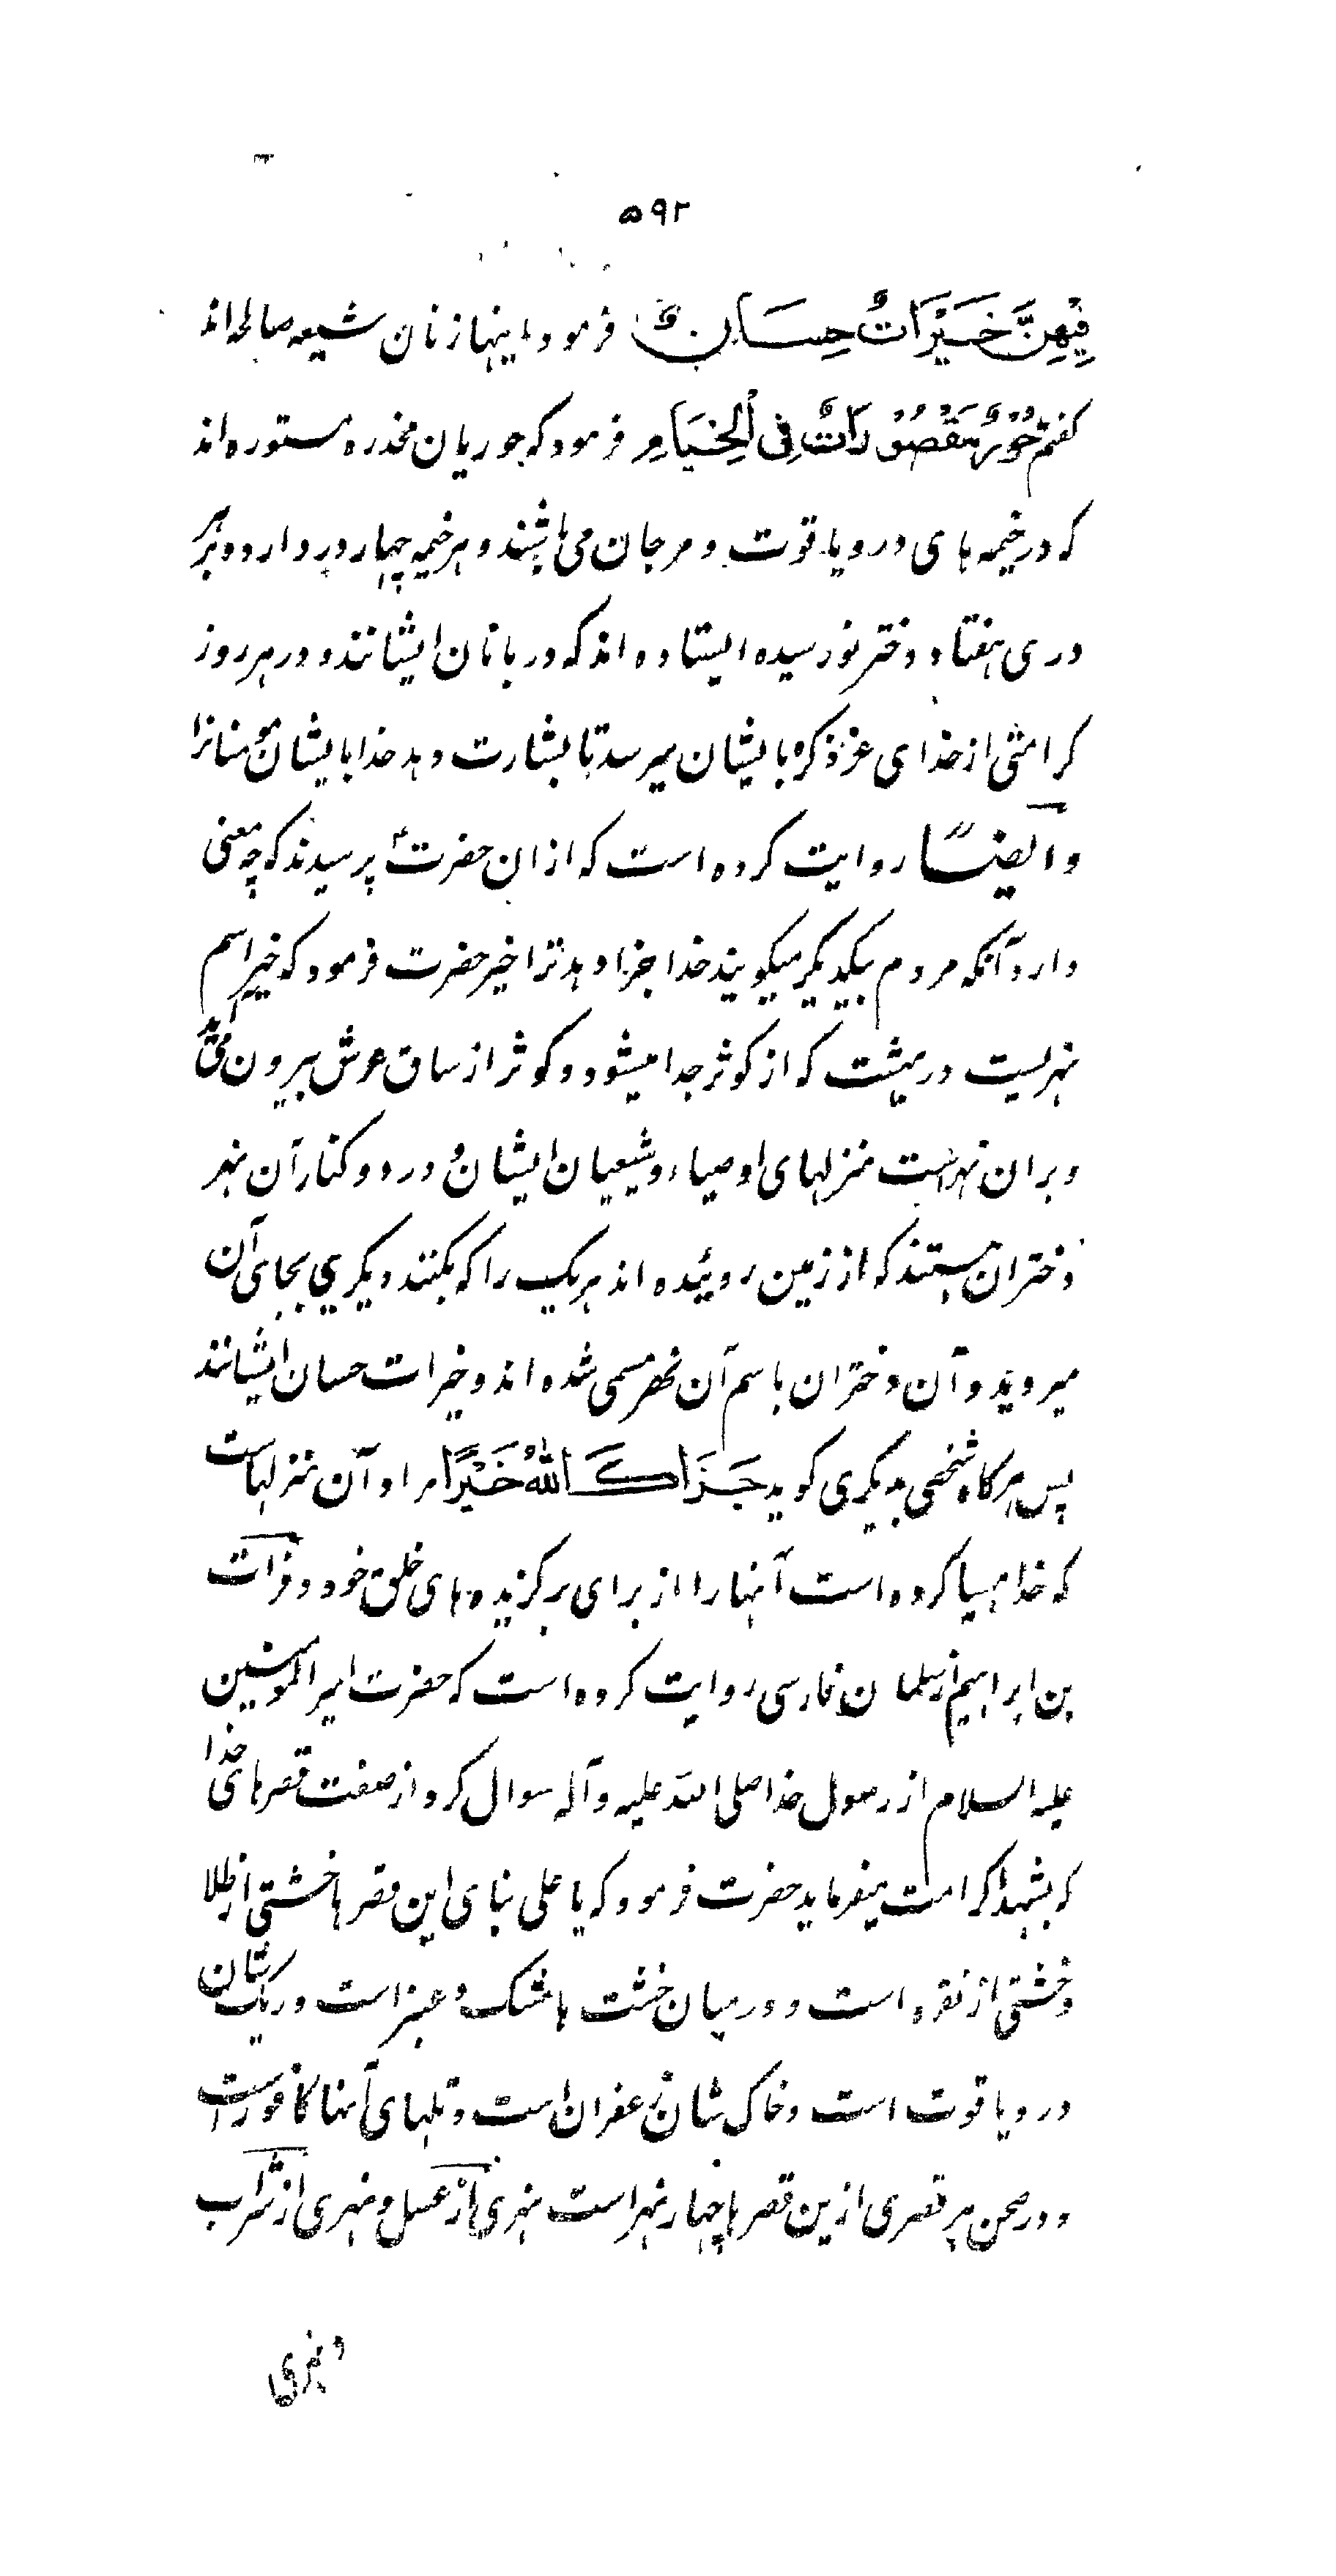 ۵۹۲
فِیْهِنَّ خَیْرَاتٌ حِسَانٌ فرمود اینها زنان شیعه صالحه اند
کفتم حُوْرٌ مَقْصُوْرَاتٌ فِی الْخِیَامِ فرمود که حوریان مخدره مستوره اند
که در خیمه های در و یاقوت و مرجان می باشند و هر خیمه چهار در دارد و بر هر
دری هفتاد دختر نورسیده ایستاده اند که دربانان ایشانند و در هر روز
کرامتی از خدای عز ذکره بایشان میرسد تا بشارت دهد خدا بایشان مؤمنانرا
و ایضًا روایت کرده است که از ان حضرت پرسیدند که چه معنی
دارد آنکه مردم بیکدیکر میکویند خدا جزا دهد ترا خیر حضرت فرمود که خیر اسم
نهریست در بهشت که از کوثر جدا میشود و کوثر از ساق عرش بیرون می آید
و بران نهر است منزلهای اوصیاء و شیعیان ایشان و در دو کنار آن نهر
دختران هستند که از زمین روئیده اند هر یک را که بکنند دیکری بجای آن
میروید و آن دختران باسم آن نهر مسمی شده اند و خیرات حسان ایشانند
پس هر کاه شخصی بدیکری کوید جَزَاكَ اللّٰهُ خَیْرًا مراد آن منزلهاست
که خدا مهیا کرده است آنها را از برای برکزیده های خلق خود و فرات
بن ابراهیم از سلمان فارسی روایت کرده است که حضرت امیر المومنین
علیه السلام از رسول خدا صلی الله علیه و آله سوال کرد از صفت قصرهای خدا
که بشهدا کرامت میفرماید حضرت فرمود که یا علی بنای این قصرها خشتی از طلا
و خشتی از نقره است و در میان خشت ها مشک و عنبر است و ریک شان
در و یاقوت است و خاک شان زعفران است و تلهای آنها کافور است
و در صحن هر قصری ازین قصرها چهار نهر است نهری از عسل و نهری از شراب
و نهری